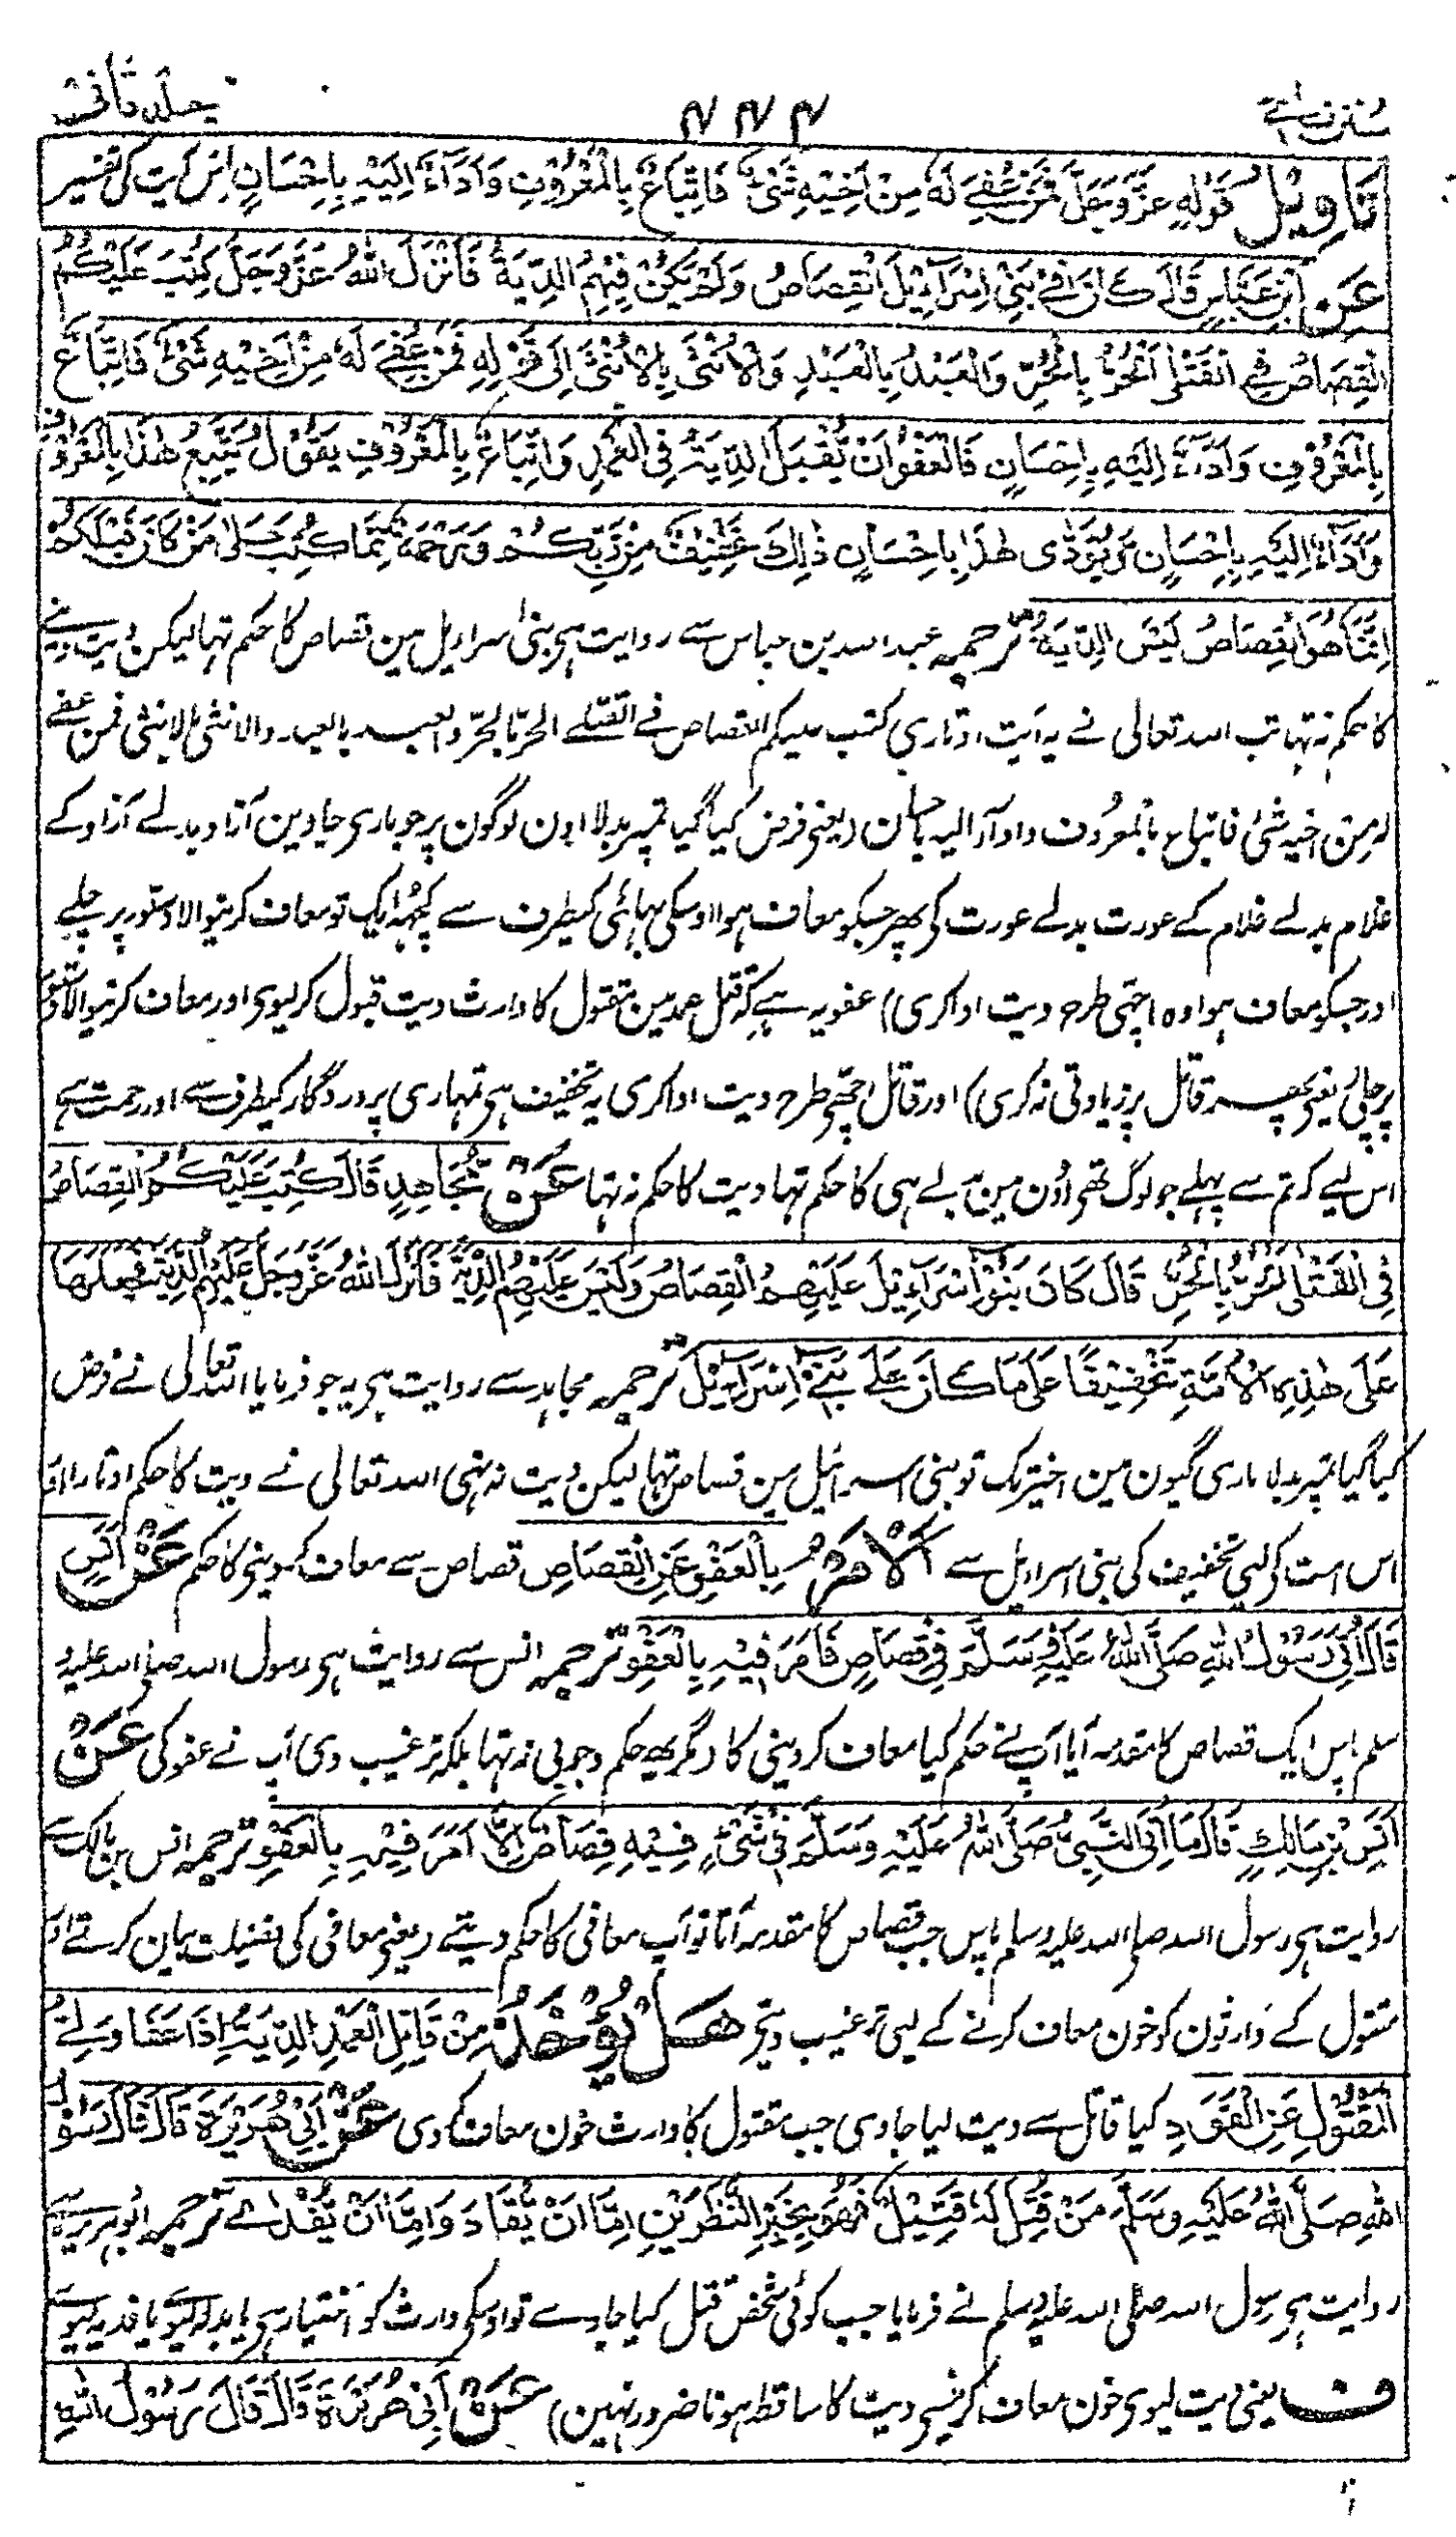 سنن نسائے ۴۴۴ جلد ثانی
تَاوِيْلُ قَوْلِهٖ عَزَّوَجَلَّ فَمَنْ عُفِيَ لَهٗ مِنْ اَخِيْهِ شَيْءٌ فَاتِّبَاعٌ بِالْمَعْرُوْفِ وَاَدَآءٌ اِلَيْهِ بِاِحْسَانٍ اس آیت کی تفسیر
عَنِ ابْنِ عَبَّاسٍ قَالَ كَانَ فِيْ بَنِيْ اِسْرَآءِيْلَ الْقِصَاصُ وَلَمْ يَكُنْ فِيْهِمُ الدِّيَةُ فَاَنْزَلَ اللّٰهُ عَزَّوَجَلَّ كُتِبَ عَلَيْكُمُ
الْقِصَاصُ فِي الْقَتْلٰى اَلْحُرُّ بِالْحُرِّ وَالْعَبْدُ بِالْعَبْدِ وَالْاُنْثٰى بِالْاُنْثٰى اِلٰى قَوْلِهٖ فَمَنْ عُفِيَ لَهٗ مِنْ اَخِيْهِ شَيْءٌ فَاتِّبَاعٌ
بِالْمَعْرُوْفِ وَاَدَآءٌ اِلَيْهِ بِاِحْسَانٍ فَالْعَفْوُ اَنْ تُقْبَلَ الدِّيَةُ فِي الْعَمْدِ وَاتِّبَاعٌ بِالْمَعْرُوْفِ يَقُوْلُ يَتَّبِعُ هٰذَا بِالْمَعْرُوْفِ
وَاَدَآءٌ اِلَيْهِ بِاِحْسَانٍ وَيُؤَدِّى هٰذَا بِاِحْسَانٍ ذٰلِكَ تَخْفِيْفٌ مِنْ رَبِّكُمْ وَرَحْمَةٌ مِمَّا كُتِبَ عَلٰى مَنْ كَانَ قَبْلَكُمْ
اِنَّمَا هُوَ الْقِصَاصُ لَيْسَ الدِّيَةُ ترجمہ عبد اللہ بن عباس سے روایت ہی بنی اسراییل مین قصاص کا حکم تہا لیکن دیت دینے
کا حکم نہ تہا تب اللہ تعالی نے یہ آیت اوتاری کتب علیکم القصاص فے القتلے الحرّ بالحرّ والعبد بالعبد والانثی بالانثی فمن عفے
لہ من اخیہ شئ فاتباع بالمعروف واداآ الیہ باحسان (یعنی فرض کیا گیا تمپر بدلا اون لوگون پر جو ماری جاوین آزاد بدلے آزاد کے
غلام بدلے غلام کے عورت بدلے عورت کی پھر جسکو معاف ہوا اوسکی بہائی کیطرف سے کچہہ ایک تو معاف کرنیوالا دستور پر چلے
اور جسکو معاف ہوا وہ اچہی طرح دیت ادا کری) عفو یہ ہے کہ قتل عمد مین مقتول کا وارث دیت قبول کر لیوی اور معاف کرنیوالا دستور
پر چلی (یعنی پھر قاتل پر زیادتی نہ کری) اور قاتل اچہی طرح دیت ادا کری یہ تخفیف ہی تمہاری پروردگار کیطرف سے اور رحمت ہے
اس لیے کہ تم سے پہلے جو لوگ تھی اون مین بدلے ہی کا حکم تہا دیت کا حکم نہ تہا عَنْ مُجَاهِدٍ قَالَ كُتِبَ عَلَيْكُمُ الْقِصَاصُ
فِي الْقَتْلَى الْحُرُّ بِالْحُرِّ قَالَ كَانَ بَنُوْ اِسْرَآءِيْلَ عَلَيْهِمُ الْقِصَاصُ وَلَيْسَ عَلَيْهِمُ الدِّيَةُ فَاَنْزَلَ اللّٰهُ عَزَّوَجَلَّ عَلَيْهِمُ الدِّيَةَ فَجَعَلَهَا
عَلٰى هٰذِهِ الْاُمَّةِ تَخْفِيْفًا عَلٰى مَا كَانَ عَلٰى بَنِيْ اِسْرَآءِيْلَ ترجمہ مجاہد سے روایت ہی یہ جو فرمایا اللہ تعالی نے فرض
کیا گیا تمپر بدلا ماری گیون مین اخیر تک تو بنی اسرائیل مین قصاص تہا لیکن دیت نہ تہی اللہ تعالی نے دیت کا حکم اوتارا اور
اس امت کو لیی تخفیف کی بنی اسراییل سے اَلْاَمْرُ بِالْعَفْوِ عَنِ الْقِصَاصِ قصاص سے معاف کر دینی کا حکم عَنْ اَنَسٍ
قَالَ اُتِيَ رَسُوْلُ اللّٰهِ صَلَّى اللّٰهُ عَلَيْهِ وَسَلَّمَ فِيْ قِصَاصٍ فَاَمَرَ فِيْهِ بِالْعَفْوِ ترجمہ انس سے روایت ہی رسول اللہ صلی اللہ علیہ و
سلم پاس ایک قصاص کا مقدمہ آیا آپ نے حکم کیا معاف کر دینی کا (مگر یہ حکم وجوبی نہ تہا بلکہ ترغیب دی آپ نے عفو کی عَنْ
اَنَسِ بْنِ مَالِكٍ قَالَ مَا اُتِيَ النَّبِيُّ صَلَّى اللّٰهُ عَلَيْهِ وَسَلَّمَ فِيْ شَيْءٍ فِيْهِ قِصَاصٌ اِلَّا اَمَرَ فِيْهِ بِالْعَفْوِ ترجمہ انس بن مالک سے
روایت ہی رسول اللہ صلی اللہ علیہ وسلم پاس جب قصاص کا مقدمہ آتا تو آپ معافی کا حکم دیتے (یعنی معافی کی فضیلت بیان کرتے اور
مقتول کے وارثون کو خون معاف کرنے کے لیی ترغیب دیتی هَلْ يُؤْخَذُ مِنْ قَاتِلِ الْعَمْدِ الدِّيَةُ اِذَا عَفَا وَلِيُّ
الْمَقْتُوْلِ عَنِ الْقَوَدِ کیا قاتل سے دیت لیا جاوی جب مقتول کا وارث خون معاف کر دی عَنْ اَبِيْ هُرَيْرَةَ قَالَ قَالَ رَسُوْلُ
اللّٰهِ صَلَّى اللّٰهُ عَلَيْهِ وَسَلَّمَ مَنْ قُتِلَ لَهٗ قَتِيْلٌ فَهُوَ بِخَيْرِ النَّظَرَيْنِ اِمَّا اَنْ يُقَادَ وَاِمَّا اَنْ يُفْدٰى ترجمہ ابو ہریرہ سے
روایت ہی رسول اللہ صلی اللہ علیہ وسلم نے فرمایا جب کوئی شخص قتل کیا جاوے تو اوسکی وارث کو اختیار ہی یا بدلہ لیوے یا فدیہ لیوے
ف یعنی دیت لیوی خون معاف کرنیسی دیت کا ساقط ہونا ضرور نہین) عَنْ اَبِيْ هُرَيْرَةَ قَالَ قَالَ رَسُوْلُ اللّٰهِ